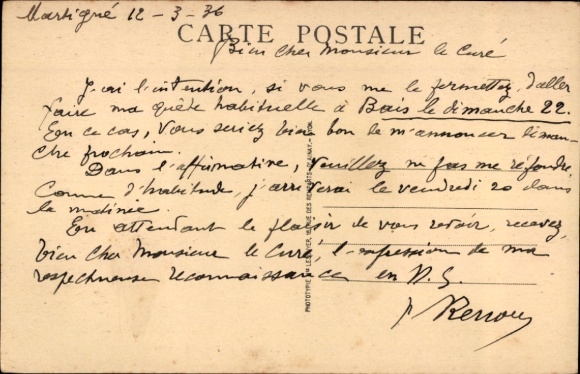 Martigné 12-3-36
CARTE POSTALE
Bien cher Monsieur le Curé
J'ai l'intention, si vous me le permettez, d'aller
faire ma quête habituelle à Bais le dimanche 22.
En ce cas, vous seriez bien bon de m'annoncer diman-
che prochain.
Dans l'affirmative, veuillez ne pas me répondre.
Comme d'habitude, j'arriverai le vendredi 20 dans
la matinée.
En attendant le plaisir de vous revoir, recevez,
bien cher Monsieur le Curé, l'expression de ma
respectueuse reconnaissance en N. S.
PHOTOTYPIE RUE DES REMPARTS-D'AINAY-LYON